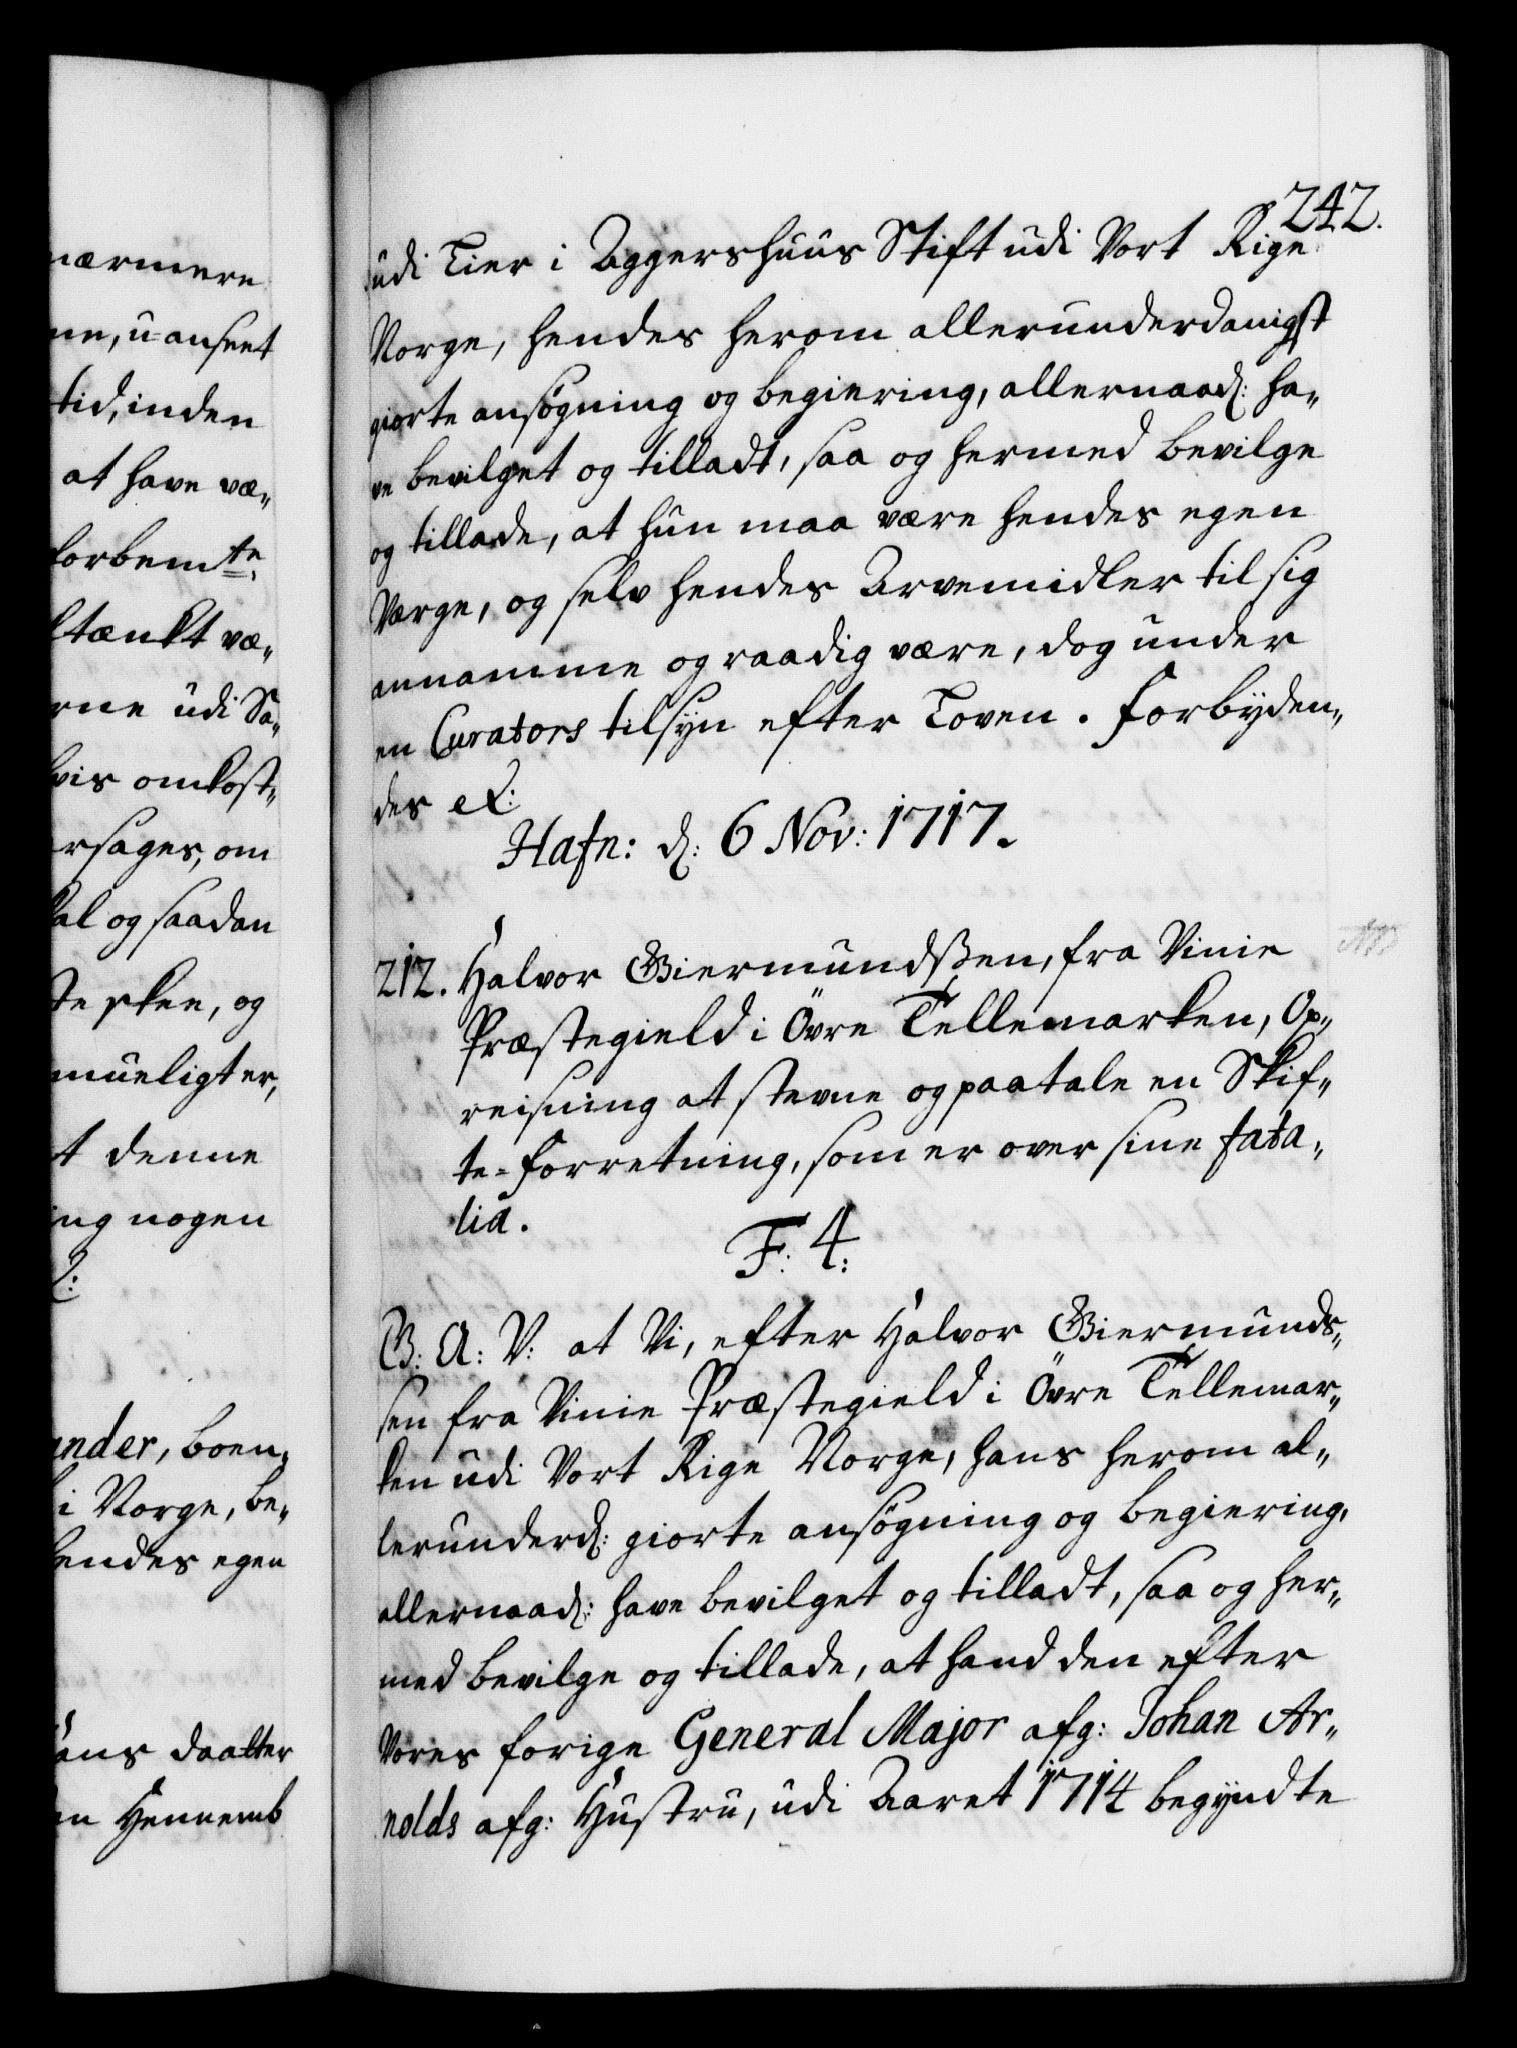 nærmere
ne, u-anseet
tid, inden
at have væ„
forbemte
ltænkt væ„
rne udi Sa„
vis omkost„
rsages, om
al og saadan
te skee, og
mueligt er,
t denne
ing nogen
ander, boen„
i Norge, be„
hendes egen
ans daatter
en Hennemb
242.
udi Lier i Aggershuus Stift udi Vort Rige
Norge, hendes herom allerunderdanigst
giorte ansøgning og begiering, allernaad: ha„
ve bevilget og tilladt, saa og hermed bevilge
og tillade, at hun maa være hendes egen
Værge, og selv hendes Arvemidler til sig
annamme og raadig være, dog under
en Curators tilsyn efter Loven. Forbyden„
des et:
Hafn: d: 6 Nov: 1717.
212. Halvor Giermundsßen, fra Vinie
Præstegield i Övre Tellemarken, Op„
reisning at stevne og paatale en Skif„
te-forretning, som er over sine fata„
lia.
F: 4:
G: A: V: at Vi, efter Halvor Giermunds„
sen fra Vinie Præstegield i Övre Tellemar„
ken udi Vort Rige Norge, hans herom al„
lerunderd: giorte ansøgning og begiering,
allernaad: have bevilget og tilladt, saa og her„
med bevilge og tillade, at hand den efter
Vores forige General Major afg: Johan Ar„
nolds afg: Hustru, udi Aaret 1714 begyndte